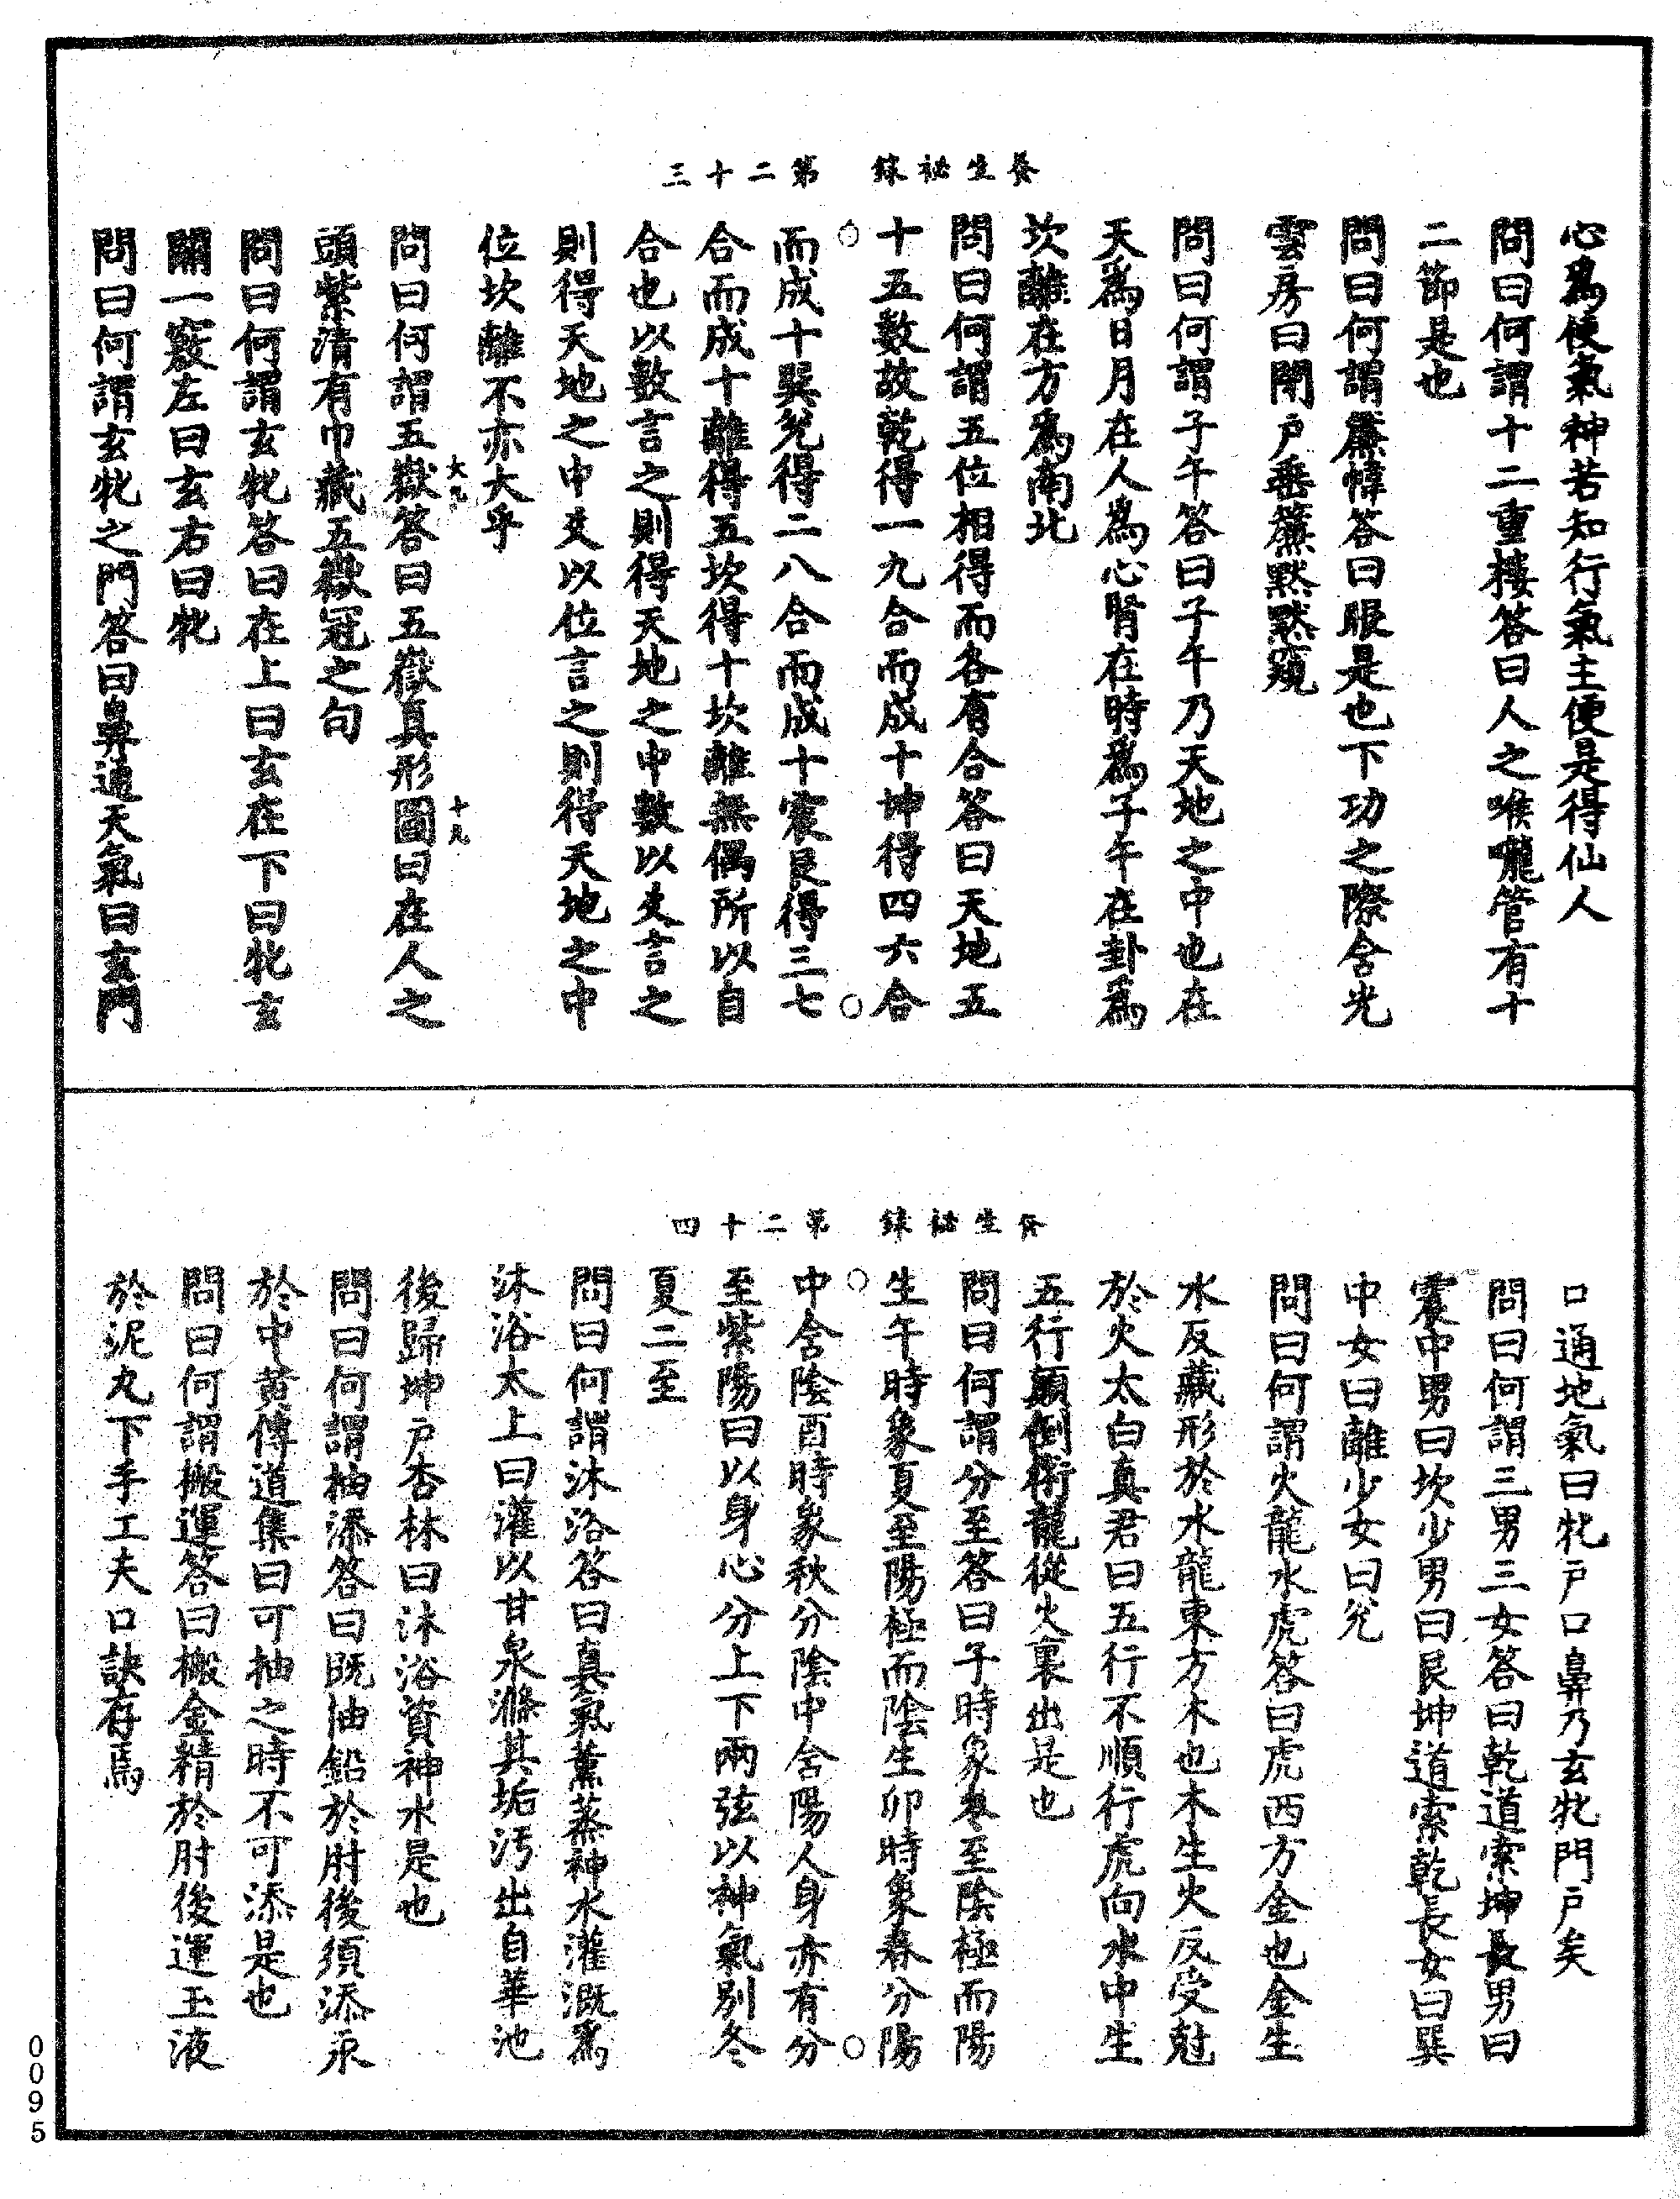 養生祕錄　第二十三
心爲使氣神若知行氣主便是得仙人
問曰何謂十二重樓答曰人之喉嚨管有十
二節是也
問曰何謂簾幃答曰眼是也下功之際含光
雲房曰閉戶垂簾默默窺
問曰何謂子午答曰子午乃天地之中也在
天爲日月在人爲心腎在時爲子午在卦爲
坎離在方爲南北
問曰何謂五位相得而各有合答曰天地五
十五數故乾得一九合而成十坤得四六合
而成十巽兌得二八合而成十震艮得三七
合而成十離得五坎得十坎離無偶所以自
合也以數言之則得天地之中數以爻言之
則得天地之中爻以位言之則得天地之中
位坎離不亦大乎
問曰何謂五嶽答曰五嶽真形圖曰在人之
大九　十九
頭紫清有巾藏五嶽冠之句
問曰何謂玄牝答曰在上曰玄在下曰牝玄
關一竅左曰玄右曰牝
問曰何謂玄牝之門答曰鼻通天氣曰玄門
養生祕錄　第二十四
口通地氣曰牝戶口鼻乃玄牝門戶矣
問曰何謂三男三女答曰乾道索坤長男曰
震中男曰坎少男曰艮坤道索乾長女曰巽
中女曰離少女曰兌
問曰何謂火龍水虎答曰虎西方金也金生
水反藏形於水龍東方木也木生火反受尅
於火太白真君曰五行不順行虎向水中生
五行顛倒術龍從火裏出是也
問曰何謂分至答曰子時象冬至陰極而陽
生午時象夏至陽極而陰生卯時象春分陽
中含陰酉時象秋分陰中含陽人身亦有分
至紫陽曰以身心分上下兩弦以神氣別冬
夏二至
問曰何謂沐浴答曰真氣薰蒸神水灌溉爲
沐浴太上曰灌以甘泉滌其垢污出自華池
後歸坤戶杏林曰沐浴資神水是也
問曰何謂抽添答曰既抽鉛於肘後須添汞
於中黃傳道集曰可抽之時不可添是也
問曰何謂搬運答曰搬金精於肘後運玉液
於泥丸下手工夫口訣存焉
0095